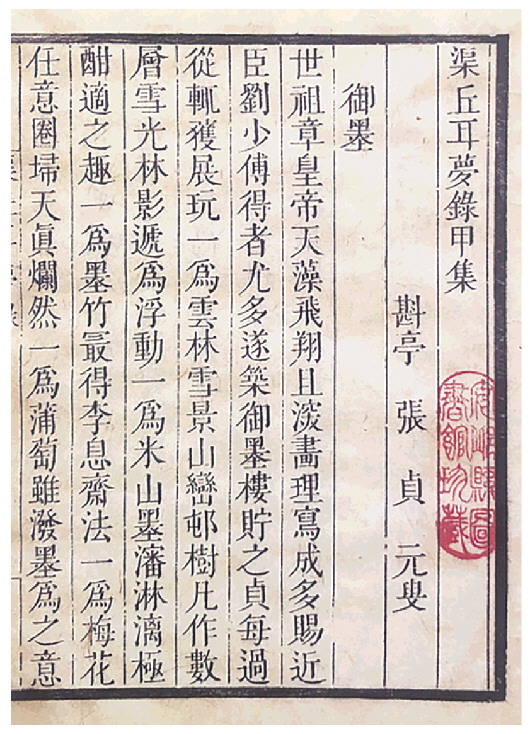 渠丘耳夢錄甲集
斟亭 張貞 元叟
御墨
世祖章皇帝天藻飛翔且深畵理寫成多賜近
臣劉少傅得者尤多遂築御墨樓貯之貞每過
從輒獲展玩一爲雲林雪景山巒邨樹凡作數
層雪光林影遞爲浮動一爲米山墨瀋淋漓極
酣適之趣一爲墨竹最得李息齋法一爲梅花
任意圈埽天眞爛然一爲蒲萄雖潑墨爲之意